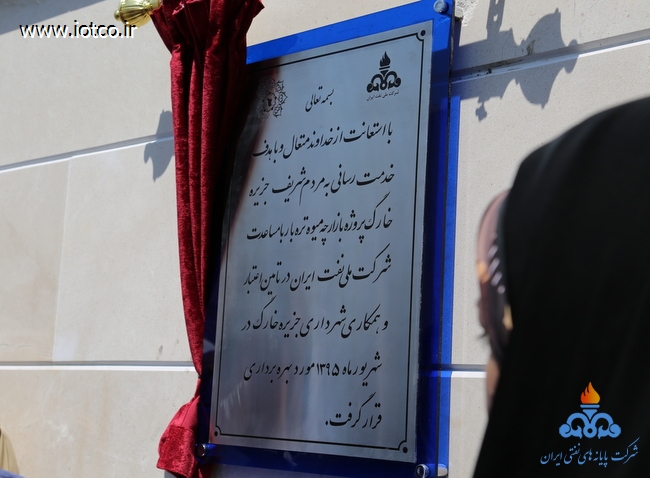 www.iotco.ir
شرکت ملی نفت ایران
بسمه تعالی
با استعانت از خداوند متعال و با هدف
خدمت رسانی به مردم شریف جزیره
خارگ پروژه بازارچه میوه تره بار با مساعدت
شرکت ملی نفت ایران در تامین اعتبار
و همکاری شهرداری جزیره خارگ در
شهریور ماه ۱۳۹۵ مورد بهره برداری
قرار گرفت.
شرکت پایانه های نفتی ایران